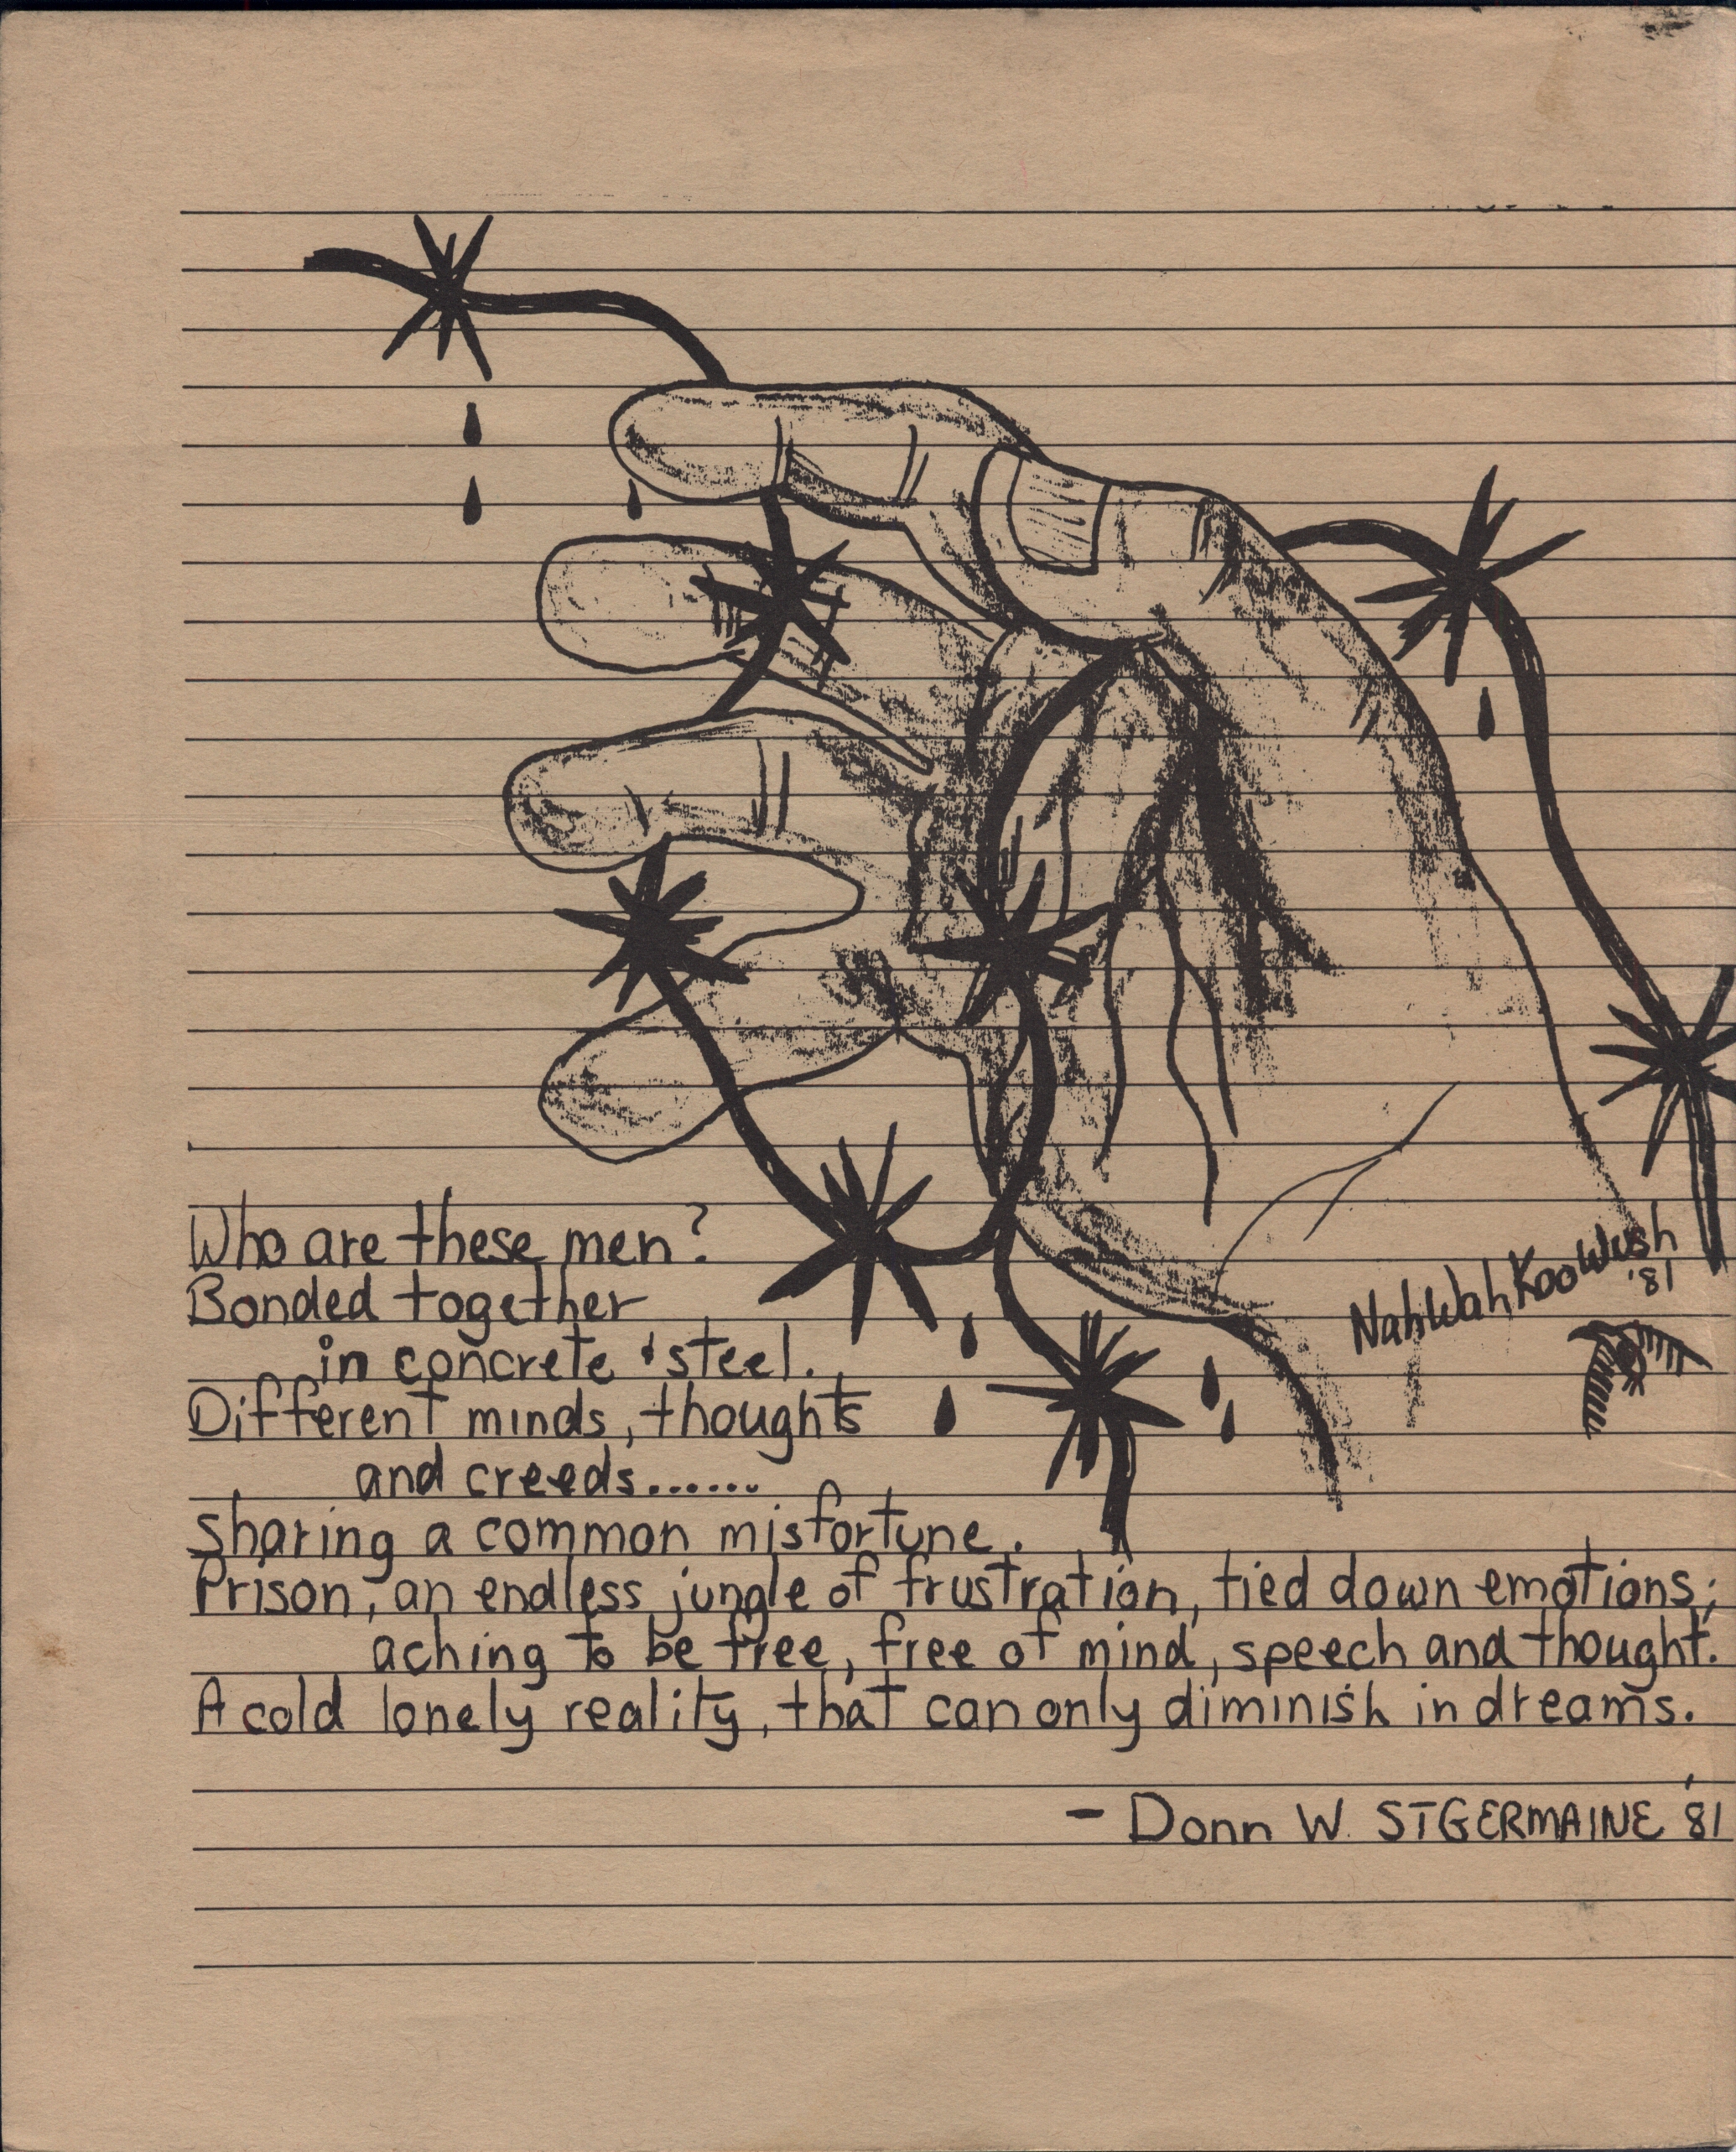 NahWahKooWush
'81
Who are these men?
Bonded together
in concrete & steel.
Different minds, thoughts
and creeds.......
sharing a common misfortune.
Prison, an endless jungle of frustration, tied down emotions;
aching to be free, free of mind, speech and thought.
A cold lonely reality, that can only diminish in dreams.
- Donn W. STGERMAINE '81